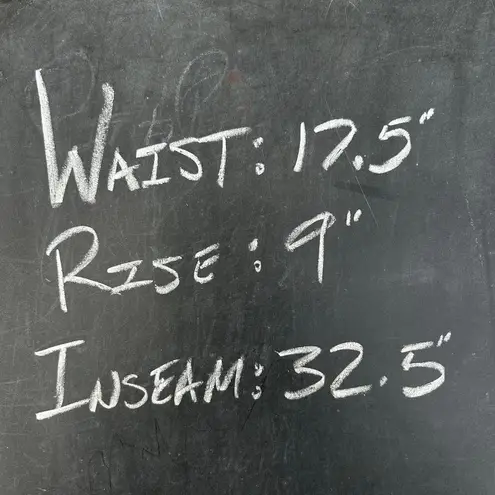 WAIST: 17.5"
RISE: 9"
INSEAM: 32.5"